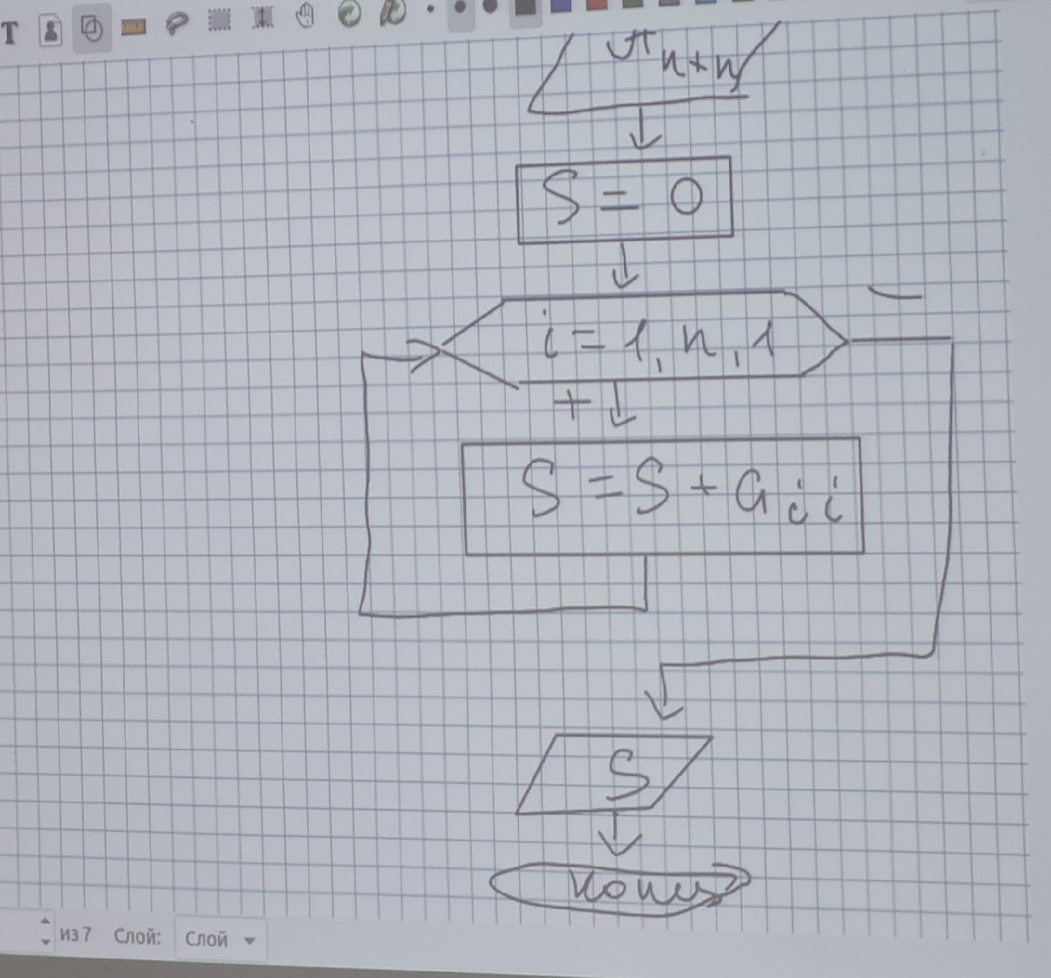 T
n+n
S = 0
i = 1, n, 1
+
S = S + a i i
S
конец
из 7 Слой: Слой